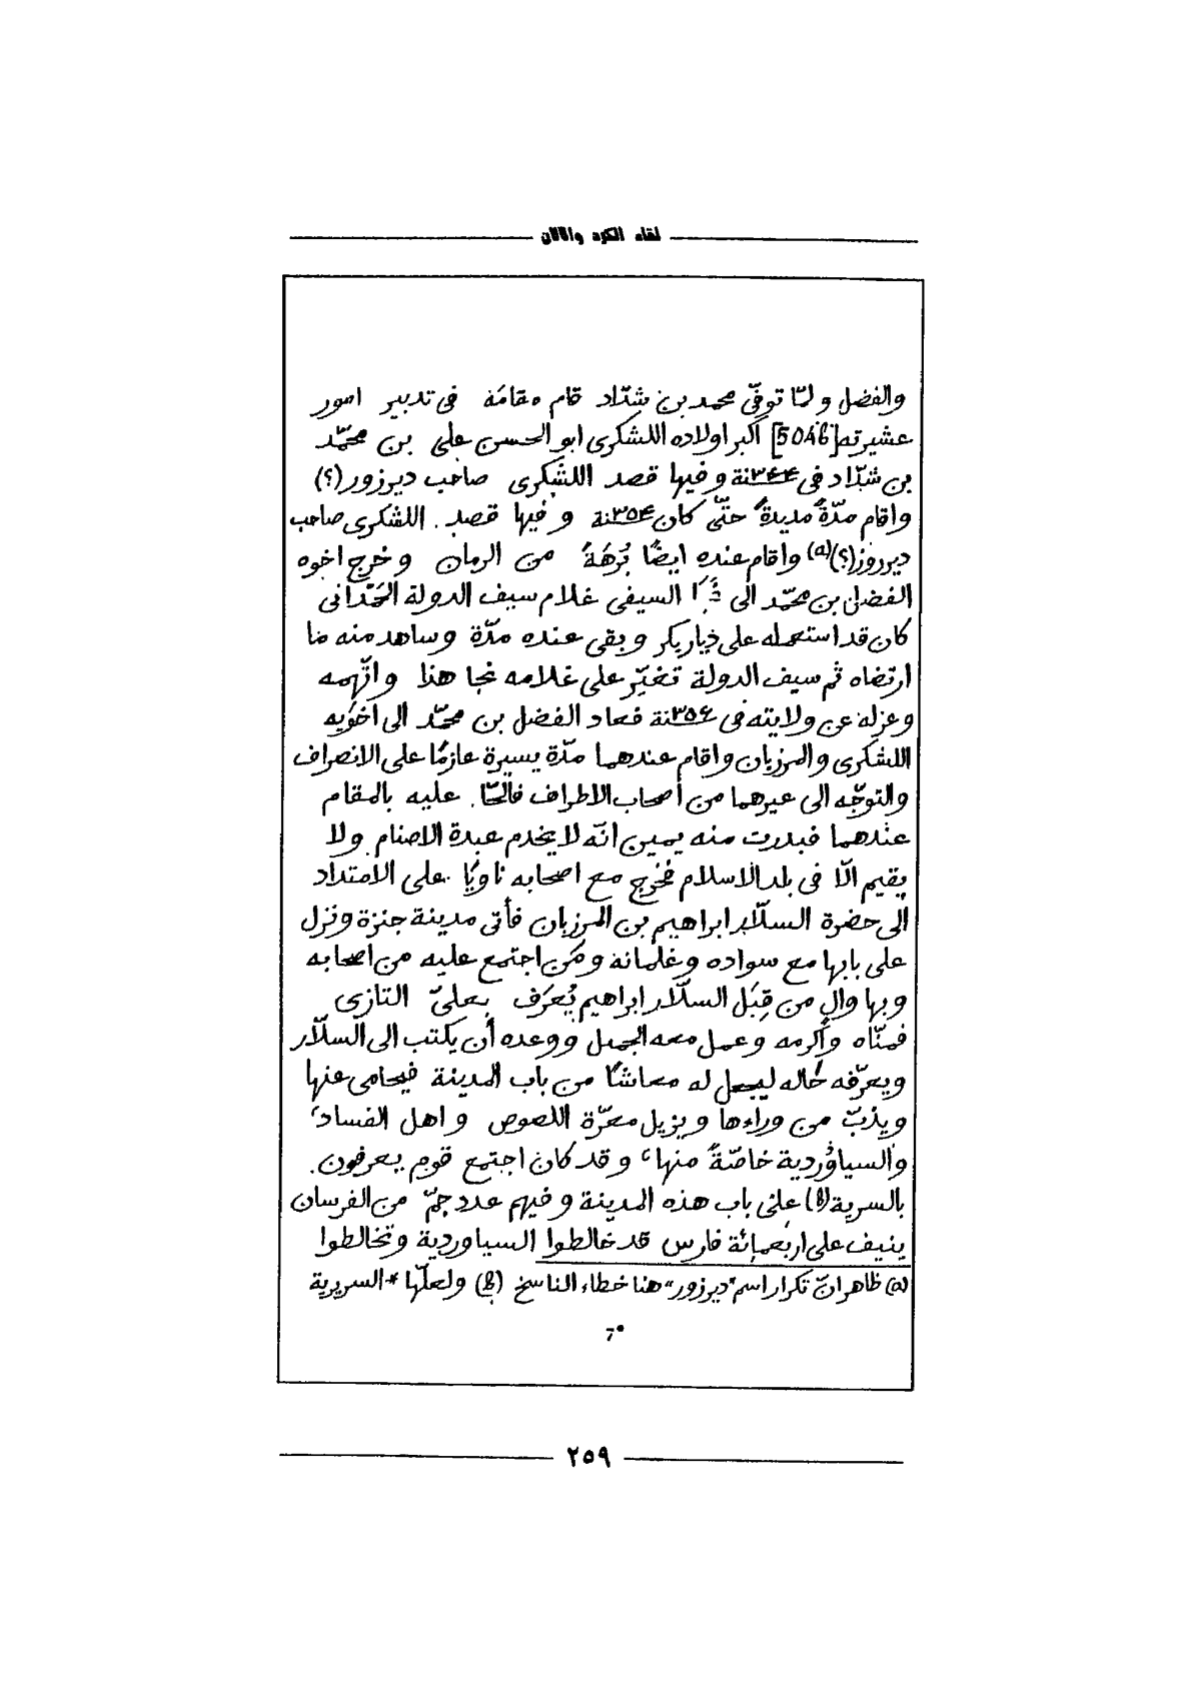 لقاء الكرد والالان
والفضل ولمّا توفّي محمد بن شدّاد قام مقامَه فى تدبير امور
عشيرته [504b] اكبر اولاده اللشكرى ابو الحسن على بن محمّد
بن شدّاد فى سنة ٣٤٤ وفيها قصد اللشكرى صاحب ديرزور (؟)
واقام مدّةً مديدةً حتّى كان سنة ٣٥٤ وفيها قصد اللشكرى صاحب
ديرروز (؟) (a) واقام عنده ايضًا بُرهَةً من الرمان وخرج اخوه
الفضل بن محمّد الى نجا السيفى غلام سيف الدولة الحَمْدانى
كان قد استعمله على دياربكر وبقى عنده مدّة وساهد منه ما
ارتضاه ثم سيف الدولة تغيّر على غلامه نجا هذا واتّهمه
وعزله عن ولايته فى سنة ٣٥٤ فعاد الفضل بن محمّد الى اخوَيه
اللشكرى والمرزبان واقام عندهما مدّة يسيرة عازمًا على الانصراف
والتوجّه الى عيرهما من أصحاب الاطراف فالحّا عليه بالمقام
عندهما فبدرت منه يمين انّه لا يخدم عبدة الاصنام ولا
يقيم الّا فى بلد الاسلام فخرج مع اصحابه ناويًا على الامتداد
الى حضرة السلّار ابراهيم بن المرزبان فأتى مدينة جنزة ونزل
على بابها مع سواده وغلمانه ومَن اجتمع عليه من اصحابه
وبها والٍ من قِبَل السلّار ابراهيم يُعرَف بعلىّ التازى
فمنّاه وأكرمه وعمل معه الجميل ووعده أن يكتب الى السلّار
ويعرّفه حَاله ليجعل له معاشًا من باب المدينة فيحامى عنها
ويذبّ من وراءها ويزيل معرّة اللصوص واهل الفساد،
والسياوُردية خاصّةً منها، وقد كان اجتمع قوم يعرفون
بالسرية (b) على باب هذه المدينة وفيهم عدد جمّ من الفرسان
ينيف على اربعمائة فارس قد خالطوا السياوردية وتخالطوا
(a) ظاهر انّ تكرار اسم "ديرزور" هنا خطاء الناسخ (b) ولعلّها * السريرية
٢٥٩